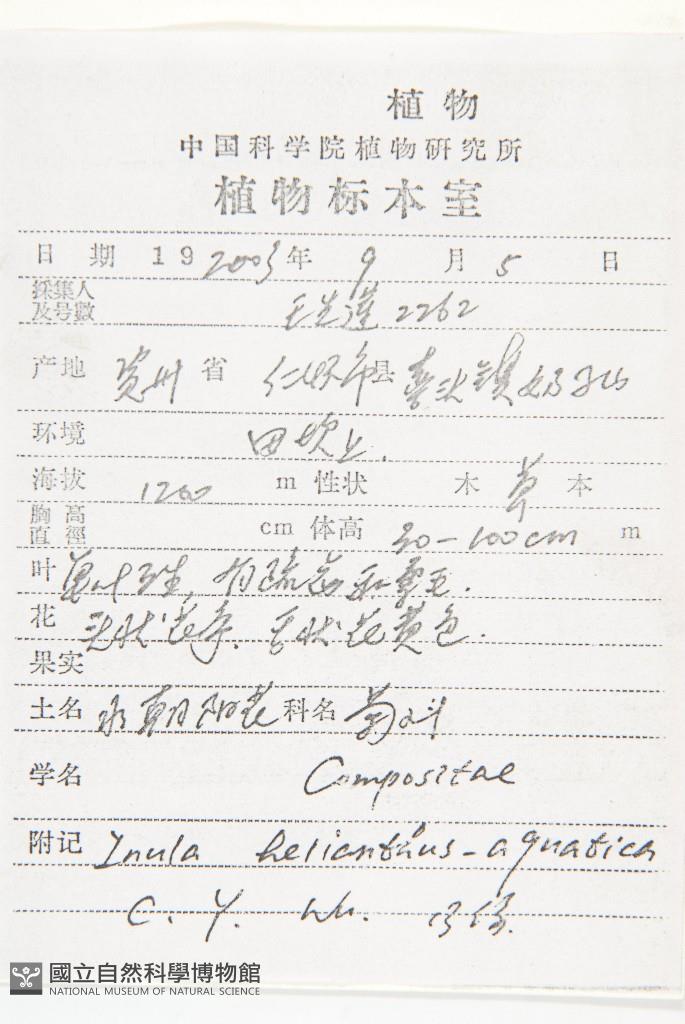 植物
中国科学院植物研究所
植物标本室
日 期 19 2003 年 9 月 5 日
採集人
及号數 2262
产地 贵州 省 仁怀市 县
环境 田坎上.
海拔 1200 m 性状 木 草 本
胸高
直徑 cm 体高 20-100cm m
叶 单叶互生,
花 头状花序. 舌状花黄色.
果实
土名 水朝阳花 科名 菊科
学名 Compositae
附记 Inula helianthus-aquatica
C. Y. Wu.
國立自然科學博物館
NATIONAL MUSEUM OF NATURAL SCIENCE